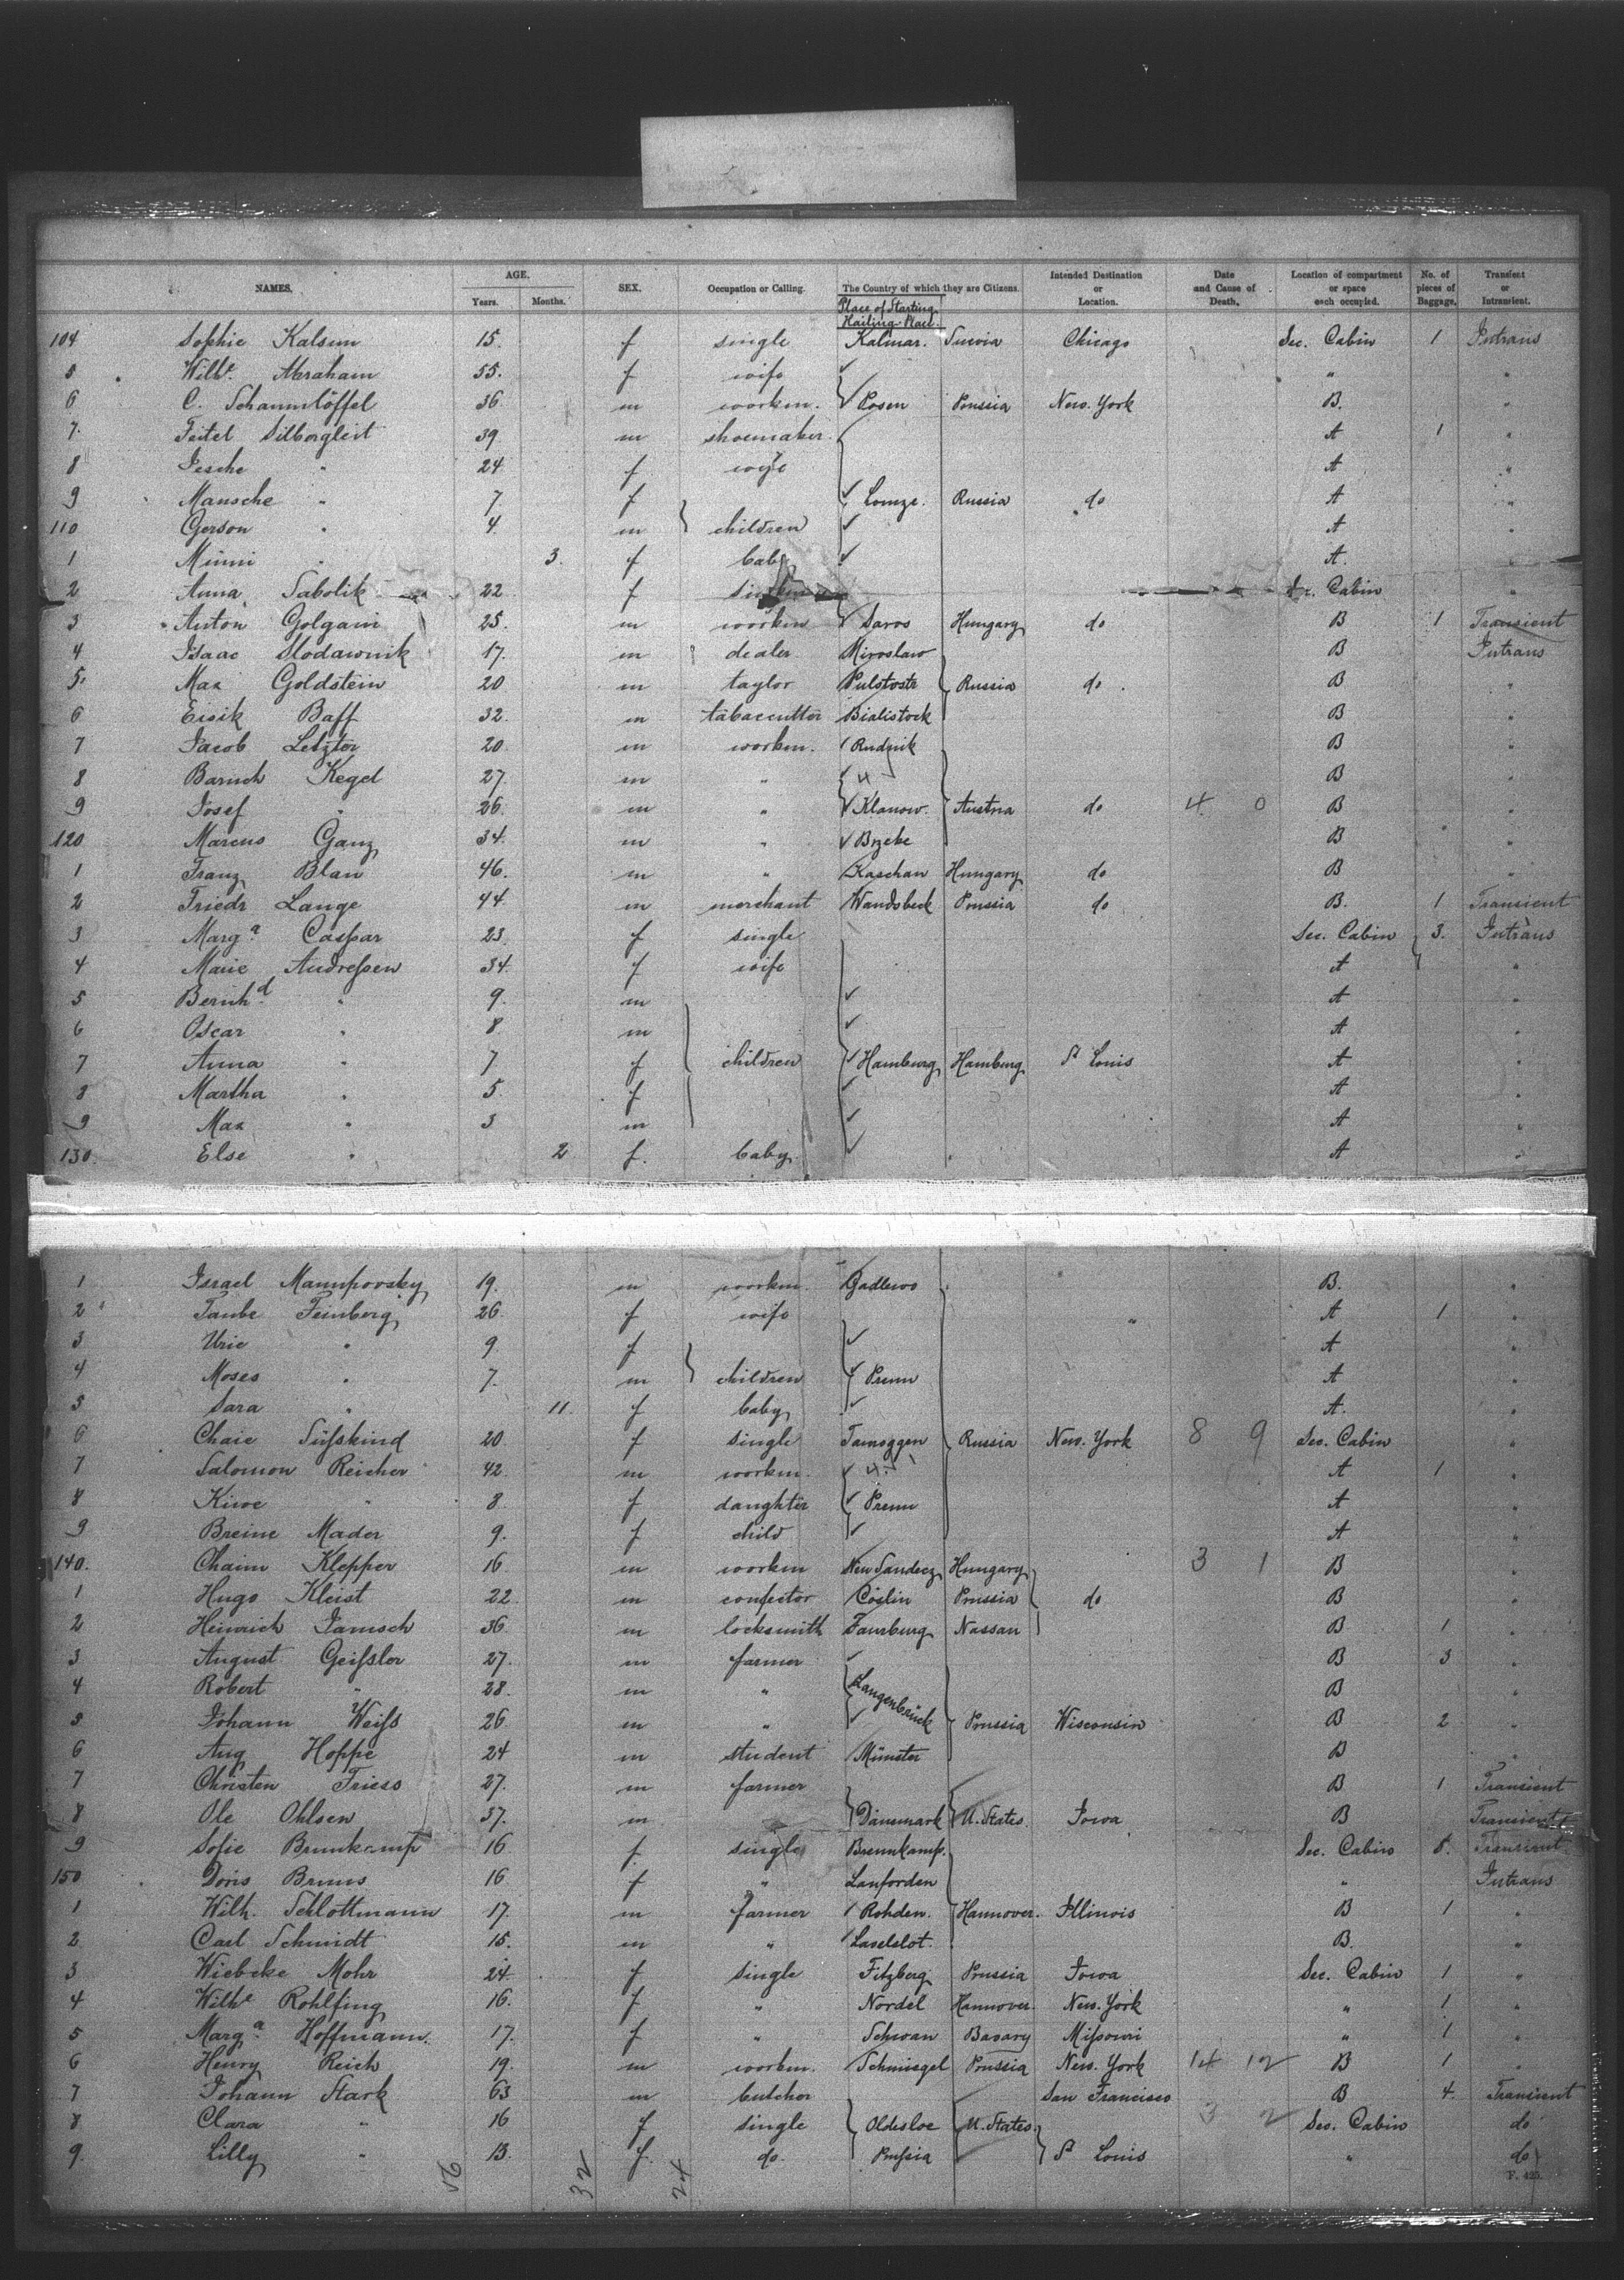 NAMES. AGE. Years. Months. SEX. Occupation or Calling. The Country of which they are Citizens. Intended Destination or Location. Date and Cause of Death. Location of compartment or space each occupied. No. of pieces of Baggage. Transient or Intransient.
Place of Starting.
Hailing-Place.
104 Sophie Kalsum 15. f single Kalmar. Suevia Chicago Sec. Cabin 1 Intrans
5 Wilhe. Abraham 55. f wife " "
6 C. Schaumlöffel 36 m workm. Posen Prussia New. York B. "
7. Feitel Silbergleit 39. m shoemaker A 1 "
8 Jesche " 24 f wife A "
9 Mansche " 7 f Lomze. Russia do A "
110 Gerson " 4 m children A "
1 Minni " 3. f baby A. "
2 Anna Sabolik 22 f Sec. Cabin "
3 Anton Golgain 25. m workm Saros Hungary do B 1 Transient
4 Isaac Slodawnik 17. m dealer Miroslaw B Intrans
5. Max Goldstein 20 m taylor Pulstostr Russia do B "
6 Eisik Baff 32. m tabaccuttor Bialistock B "
7 Jacob Letzter 20 m workm. Rudnik B "
8 Baruch Kegel 27. m " 4 B "
9 Josef " 26. m " Klanow. Austria do 4 0 B "
120 Marcus Ganz 34. m " Brzeke B "
1 Franz Blau 46. m " Kaschau Hungary do B "
2 Friedr Lange 44. m merchant Wandsbeck Prussia do B. 1 Transient
3 Marga. Caspar 23. f single Sec. Cabin 3. Intrans
4 Marie Andreßen 34. f wife A "
5 Bernhd. " 9. m A "
6 Oscar " 8 m A "
7 Anna " 7 f children Hamburg Hamburg St Louis A "
8 Martha " 5. f A "
9 Max " 3 m A "
130. Else " 2 f. baby A "
1 Israel 19. m workm. Gadlewo B. "
2 Taube Feinberg 26. f wife " A 1 "
3 Urie " 9. f A "
4 Moses " 7. m children Prenn A "
5 Sara " 11. f baby A. "
6 Chaie Süßskind 20 f single Tauroggen Russia New. York 8 9 Sec. Cabin "
7 Salomon Reicher 42. m workm. 4 A 1 "
8 Kiwe " 8. f daughter Prenn A "
9 Breine Mader 9. f child A "
140. Chaim Klepper 16 m workm New Sandecz Hungary 3 1 B "
1 Hugo Kleist 22 m confector Cöslin Prussia do B "
2 Heinrich Janisch 36. m locksmith Faurburg Nassau B 1 "
3 August Geißler 27. m farmer B 3 "
4 Robert " 28. m " Langenbrück B "
5 Johann Weiß 26 m " Prussia Wisconsin B 2 "
6 Aug Hoppe 24 m student Münster B "
7 Christen Friess 27. m farmer B 1 Transient
8 Ole Ohlsen 37. m Dänemark U. States Iowa B Transient
9 Sofie Brunkamp 16 f. single Brennkamp. Sec. Cabin 5. Transient
150 Doris Bruns 16 f " Lanforden " Intrans
1 Wilh. Schlottmann 17. m farmer Rohden. Hannover. Illinois B 1 "
2 Carl Schmidt 15. m " Laselslot. B. "
3 Wiebcke Mohr 24. f single Fitzberg Prussia Iowa Sec. Cabin 1 "
4 Wilhe Rohlfing 16. f " Nordel Hannover. New. York " 1 "
5 Marga. Hoffmann. 17. f " Schwan Bavary Mißouri " 1 "
6 Henry Reich 19. m workm. Schmiegel Prussia New. York 14 12 B 1 "
7 Johann Stark 63 m butcher San Francisco B 4. Transient
8 Clara " 16 f single Oldesloe U. States. 3 2 Sec. Cabin do
9. Lilly " 13. f. do. Prußia St Louis " do
56 32 24
F. 425.